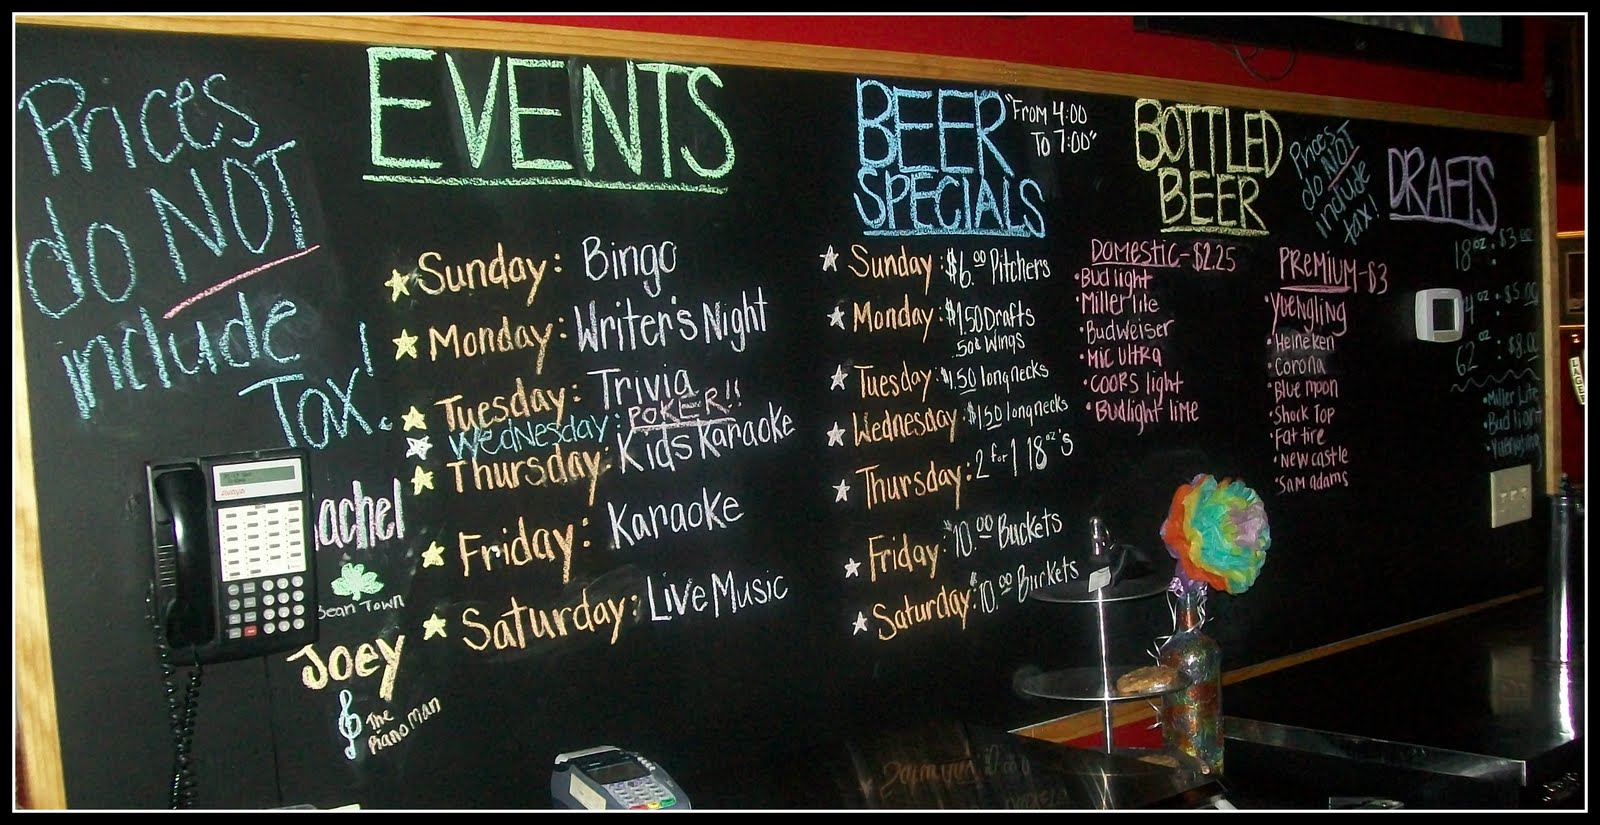 Prices
do NOT
include
Tax!
EVENTS
Sunday: Bingo
Monday: Writer's Night
Tuesday: Trivia
Wednesday: POKER!!
Thursday: Kids Karaoke
Friday: Karaoke
Saturday: Live Music
achel
Bean Town
Joey
The
Piano Man
BEER
SPECIALS
"From 4:00
To 7:00"
Sunday: $6.00 Pitchers
Monday: $1.50 Drafts
50¢ Wings
Tuesday: $1.50 longnecks
Wednesday: $1.50 longnecks
Thursday: 2 for 1 18oz's
Friday: $10.00 Buckets
Saturday: $10.00 Buckets
BOTTLED
BEER
Prices
do NOT
include
tax!
DOMESTIC - $2.25
Bud light
Miller lite
Budweiser
Mic Ultra
COORS light
Budlight lime
PREMIUM - $3
Yuengling
Heineken
Corona
Blue moon
Shock Top
Fat tire
New castle
Sam adams
DRAFTS
18oz: $3.00
4oz: $5.00
62oz: $8.00
Miller Lite
Bud light
Yuengling